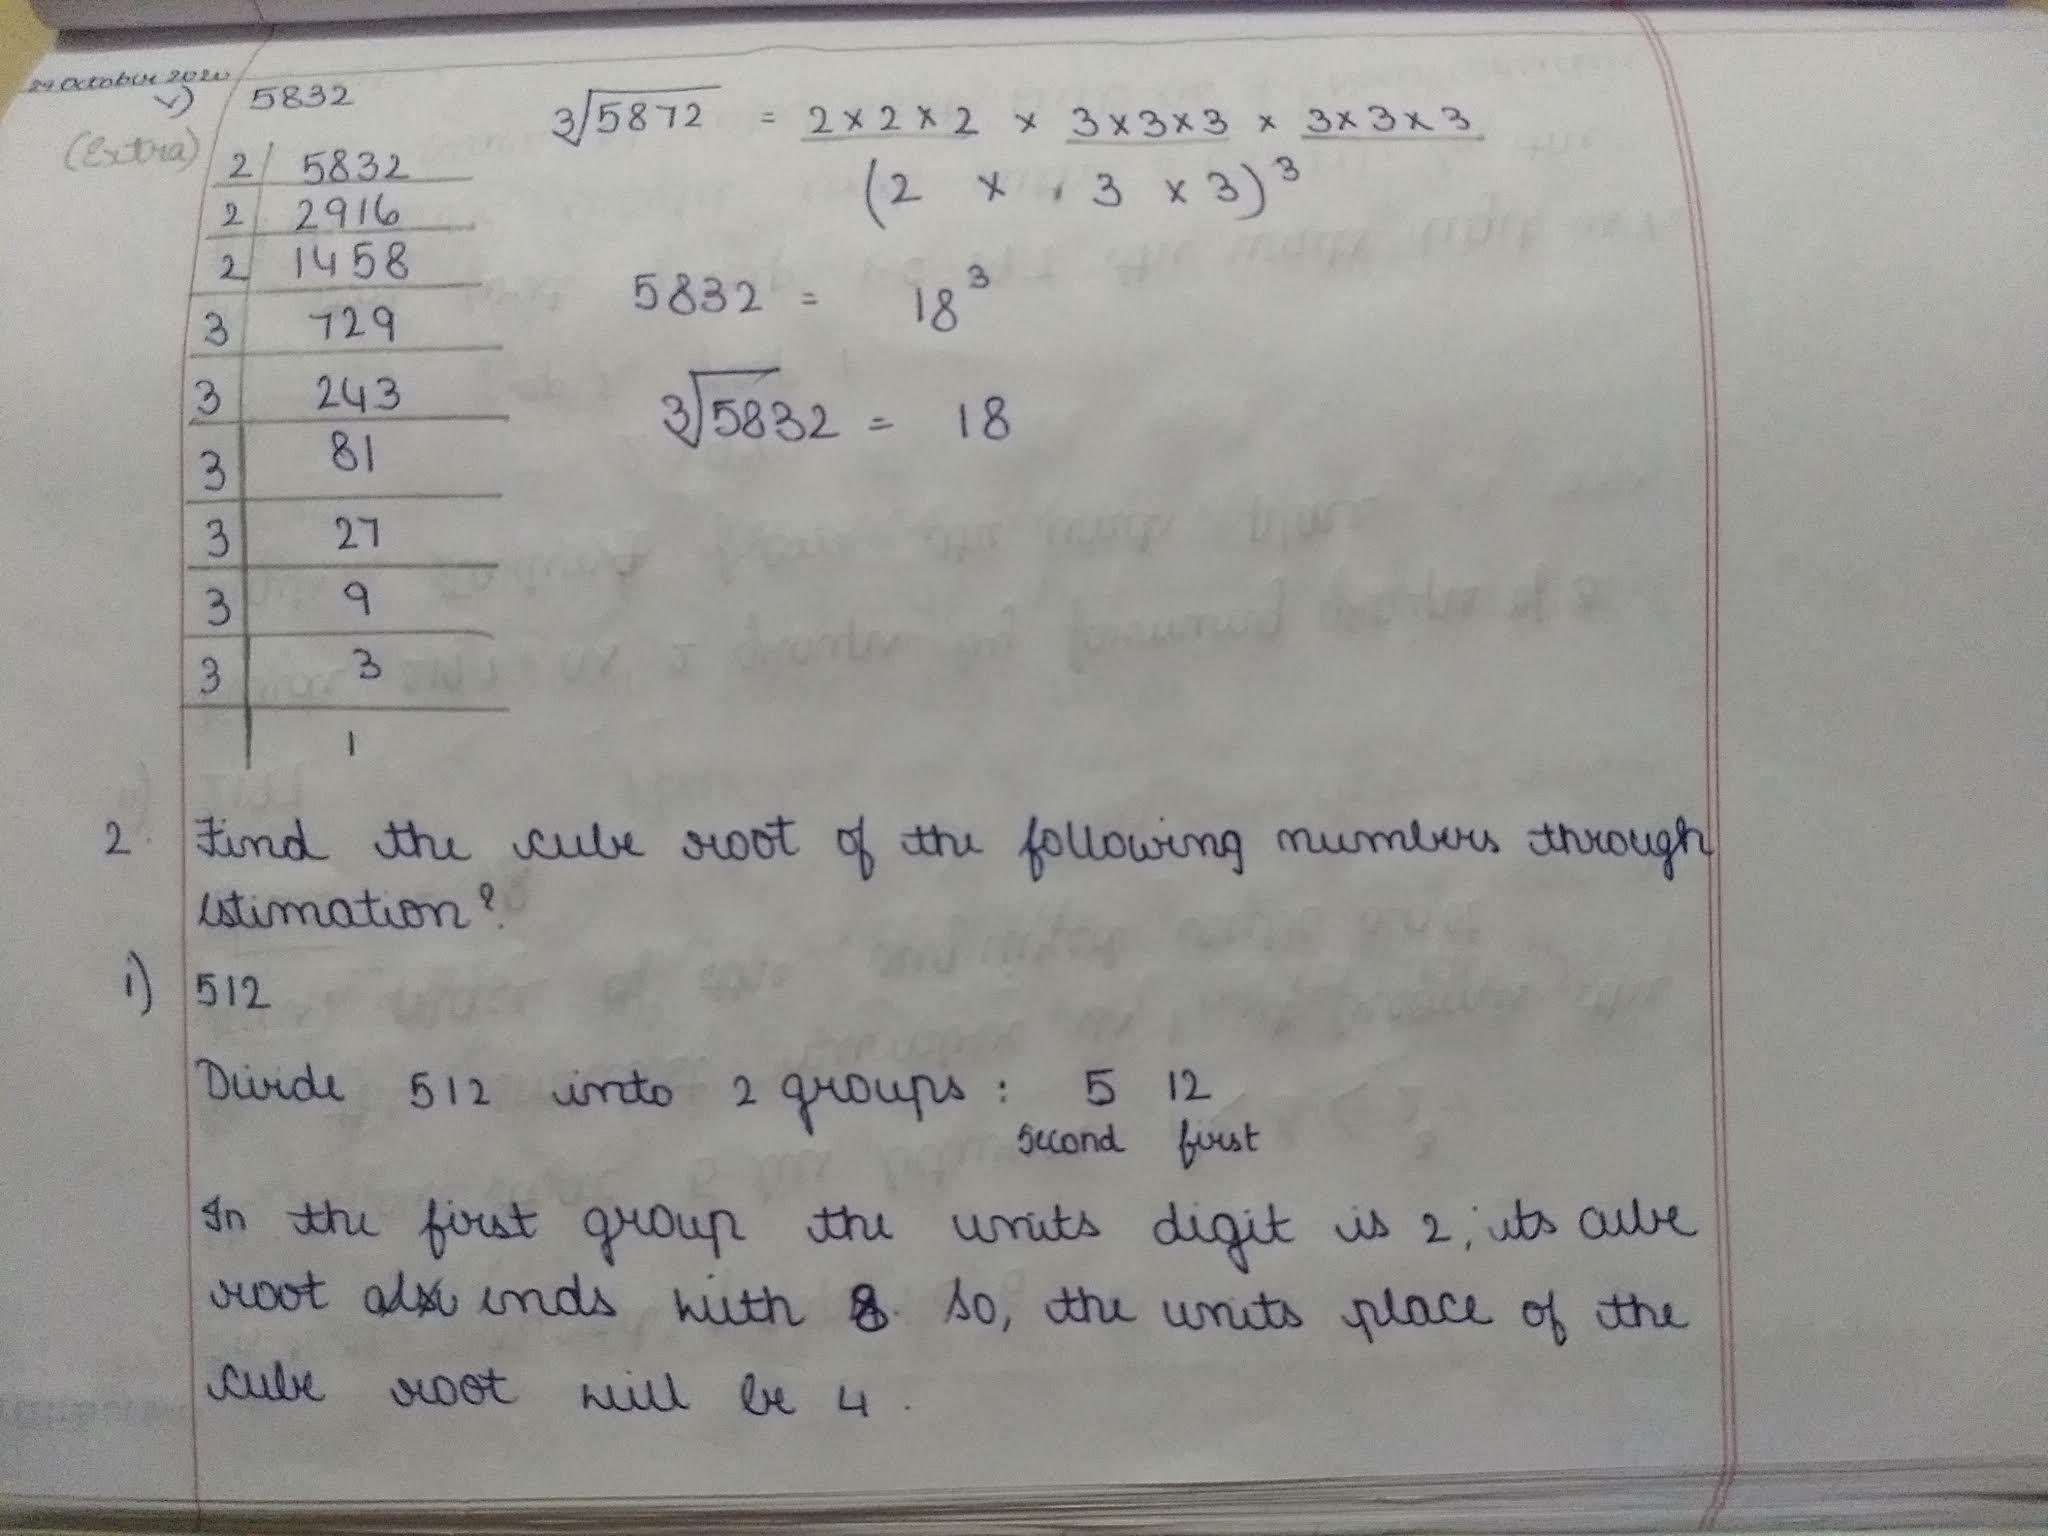 29 October 2020
v) 5832
(Extra)
2 5832
2 2916
2 1458
3 729
3 243
3 81
3 27
3 9
3 3
1
3√5872 = 2×2×2 × 3×3×3 × 3×3×3
(2 × 3 × 3)³
5832 = 18³
3√5832 = 18
2. Find the cube root of the following numbers through
estimation?
i) 512
Divide 512 into 2 groups : 5 12
second first
In the first group the units digit is 2, its cube
root also ends with 8. So, the units place of the
cube root will be 4.